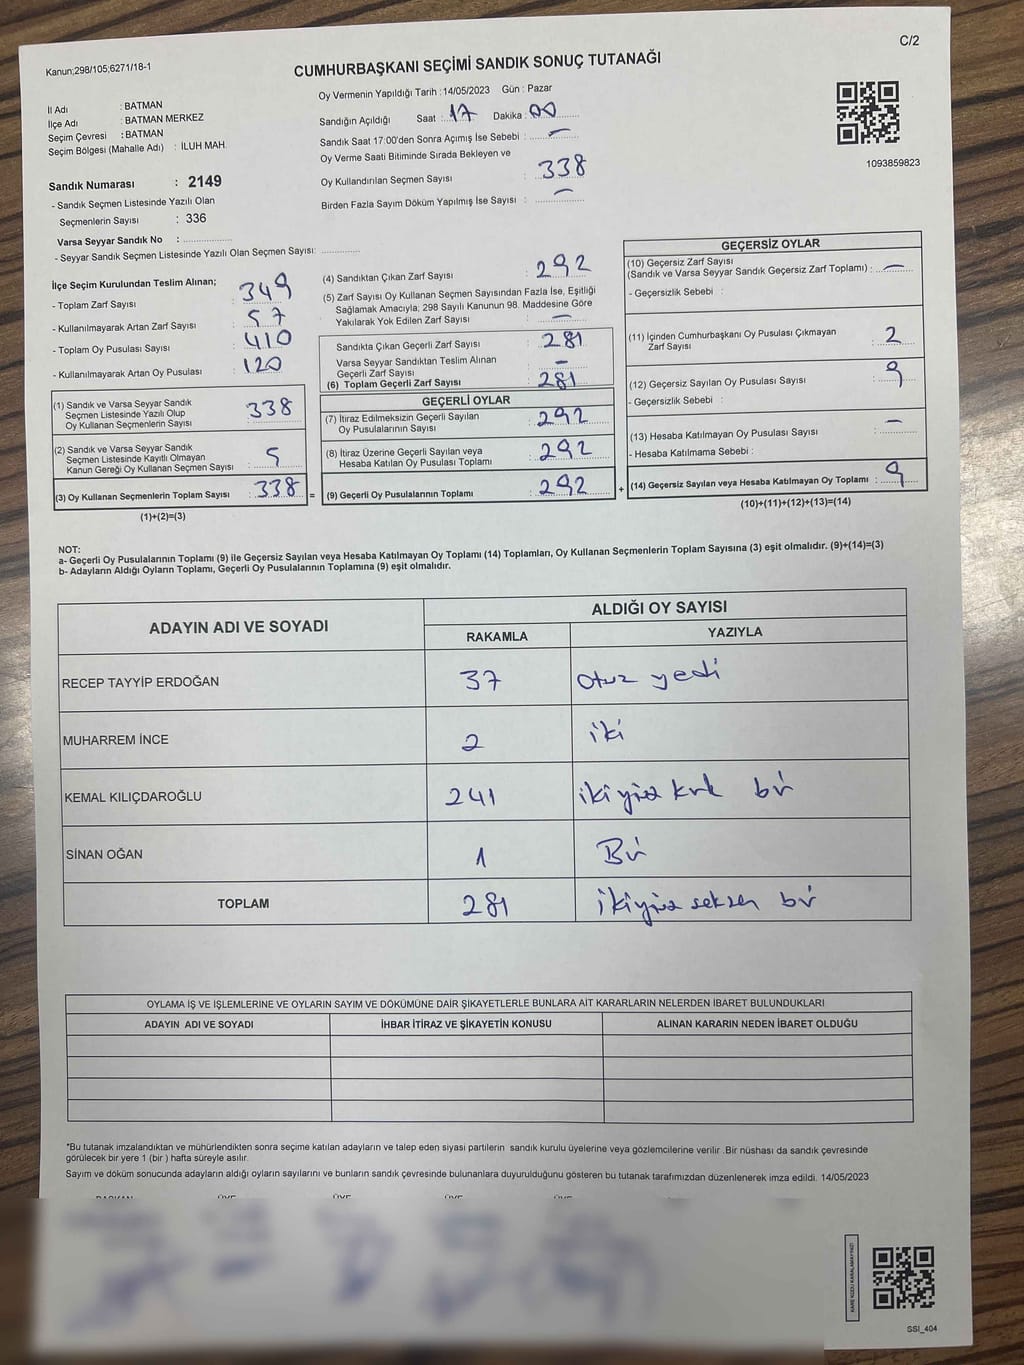 C/2
Kanun;298/105;6271/18-1
CUMHURBAŞKANI SEÇİMİ SANDIK SONUÇ TUTANAĞI
Oy Vermenin Yapıldığı Tarih : 14/05/2023 Gün : Pazar
İl Adı : BATMAN
İlçe Adı : BATMAN MERKEZ
Seçim Çevresi : BATMAN
Seçim Bölgesi (Mahalle Adı) : İLUH MAH.
Sandığın Açıldığı Saat : 17 Dakika : 00
Sandık Saat 17:00'den Sonra Açımış İse Sebebi : —
Oy Verme Saati Bitiminde Sırada Bekleyen ve
Oy Kullandırılan Seçmen Sayısı : 338
Birden Fazla Sayım Döküm Yapılmış İse Sayısı : —
1093859823
Sandık Numarası : 2149
- Sandık Seçmen Listesinde Yazılı Olan
Seçmenlerin Sayısı : 336
Varsa Seyyar Sandık No :
- Seyyar Sandık Seçmen Listesinde Yazılı Olan Seçmen Sayısı:
İlçe Seçim Kurulundan Teslim Alınan;
- Toplam Zarf Sayısı 349
- Kullanılmayarak Artan Zarf Sayısı 57
- Toplam Oy Pusulası Sayısı 410
- Kullanılmayarak Artan Oy Pusulası 120
(1) Sandık ve Varsa Seyyar Sandık
Seçmen Listesinde Yazılı Olup
Oy Kullanan Seçmenlerin Sayısı 338
(2) Sandık ve Varsa Seyyar Sandık
Seçmen Listesinde Kayıtlı Olmayan
Kanun Gereği Oy Kullanan Seçmen Sayısı 5
(3) Oy Kullanan Seçmenlerin Toplam Sayısı : 338 =
(1)+(2)=(3)
(4) Sandıktan Çıkan Zarf Sayısı : 292
(5) Zarf Sayısı Oy Kullanan Seçmen Sayısından Fazla İse, Eşitliği
Sağlamak Amacıyla; 298 Sayılı Kanunun 98. Maddesine Göre
Yakılarak Yok Edilen Zarf Sayısı : —
Sandıkta Çıkan Geçerli Zarf Sayısı : 281
Varsa Seyyar Sandıktan Teslim Alınan
Geçerli Zarf Sayısı : —
(6) Toplam Geçerli Zarf Sayısı : 281
GEÇERLİ OYLAR
(7) İtiraz Edilmeksizin Geçerli Sayılan
Oy Pusulalarının Sayısı : 292
(8) İtiraz Üzerine Geçerli Sayılan veya
Hesaba Katılan Oy Pusulası Toplamı : 292
(9) Geçerli Oy Pusulalarının Toplamı : 292 +
GEÇERSİZ OYLAR
(10) Geçersiz Zarf Sayısı
(Sandık ve Varsa Seyyar Sandık Geçersiz Zarf Toplamı) : —
- Geçersizlik Sebebi :
(11) İçinden Cumhurbaşkanı Oy Pusulası Çıkmayan
Zarf Sayısı : 2
(12) Geçersiz Sayılan Oy Pusulası Sayısı : 9
- Geçersizlik Sebebi :
(13) Hesaba Katılmayan Oy Pusulası Sayısı : —
- Hesaba Katılmama Sebebi :
(14) Geçersiz Sayılan veya Hesaba Katılmayan Oy Toplamı : 9
(10)+(11)+(12)+(13)=(14)
NOT:
a- Geçerli Oy Pusulalarının Toplamı (9) ile Geçersiz Sayılan veya Hesaba Katılmayan Oy Toplamı (14) Toplamları, Oy Kullanan Seçmenlerin Toplam Sayısına (3) eşit olmalıdır. (9)+(14)=(3)
b- Adayların Aldığı Oyların Toplamı, Geçerli Oy Pusulalarının Toplamına (9) eşit olmalıdır.
ADAYIN ADI VE SOYADI ALDIĞI OY SAYISI
RAKAMLA YAZIYLA
RECEP TAYYİP ERDOĞAN 37 Otuz yedi
MUHARREM İNCE 2 iki
KEMAL KILIÇDAROĞLU 241 ikiyüz kırk bir
SİNAN OĞAN 1 Bir
TOPLAM 281 ikiyüz seksen bir
OYLAMA İŞ VE İŞLEMLERİNE VE OYLARIN SAYIM VE DÖKÜMÜNE DAİR ŞİKAYETLERLE BUNLARA AİT KARARLARIN NELERDEN İBARET BULUNDUKLARI
ADAYIN ADI VE SOYADI İHBAR İTİRAZ VE ŞİKAYETİN KONUSU ALINAN KARARIN NEDEN İBARET OLDUĞU
*Bu tutanak imzalandıktan ve mühürlendikten sonra seçime katılan adayların ve talep eden siyasi partilerin sandık kurulu üyelerine veya gözlemcilerine verilir .Bir nüshası da sandık çevresinde
görülecek bir yere 1 (bir ) hafta süreyle asılır.
Sayım ve döküm sonucunda adayların aldığı oyların sayılarını ve bunların sandık çevresinde bulunanlara duyurulduğunu gösteren bu tutanak tarafımızdan düzenlenerek imza edildi. 14/05/2023
KARE KODU KARALAMAYINIZ!
SSI_404